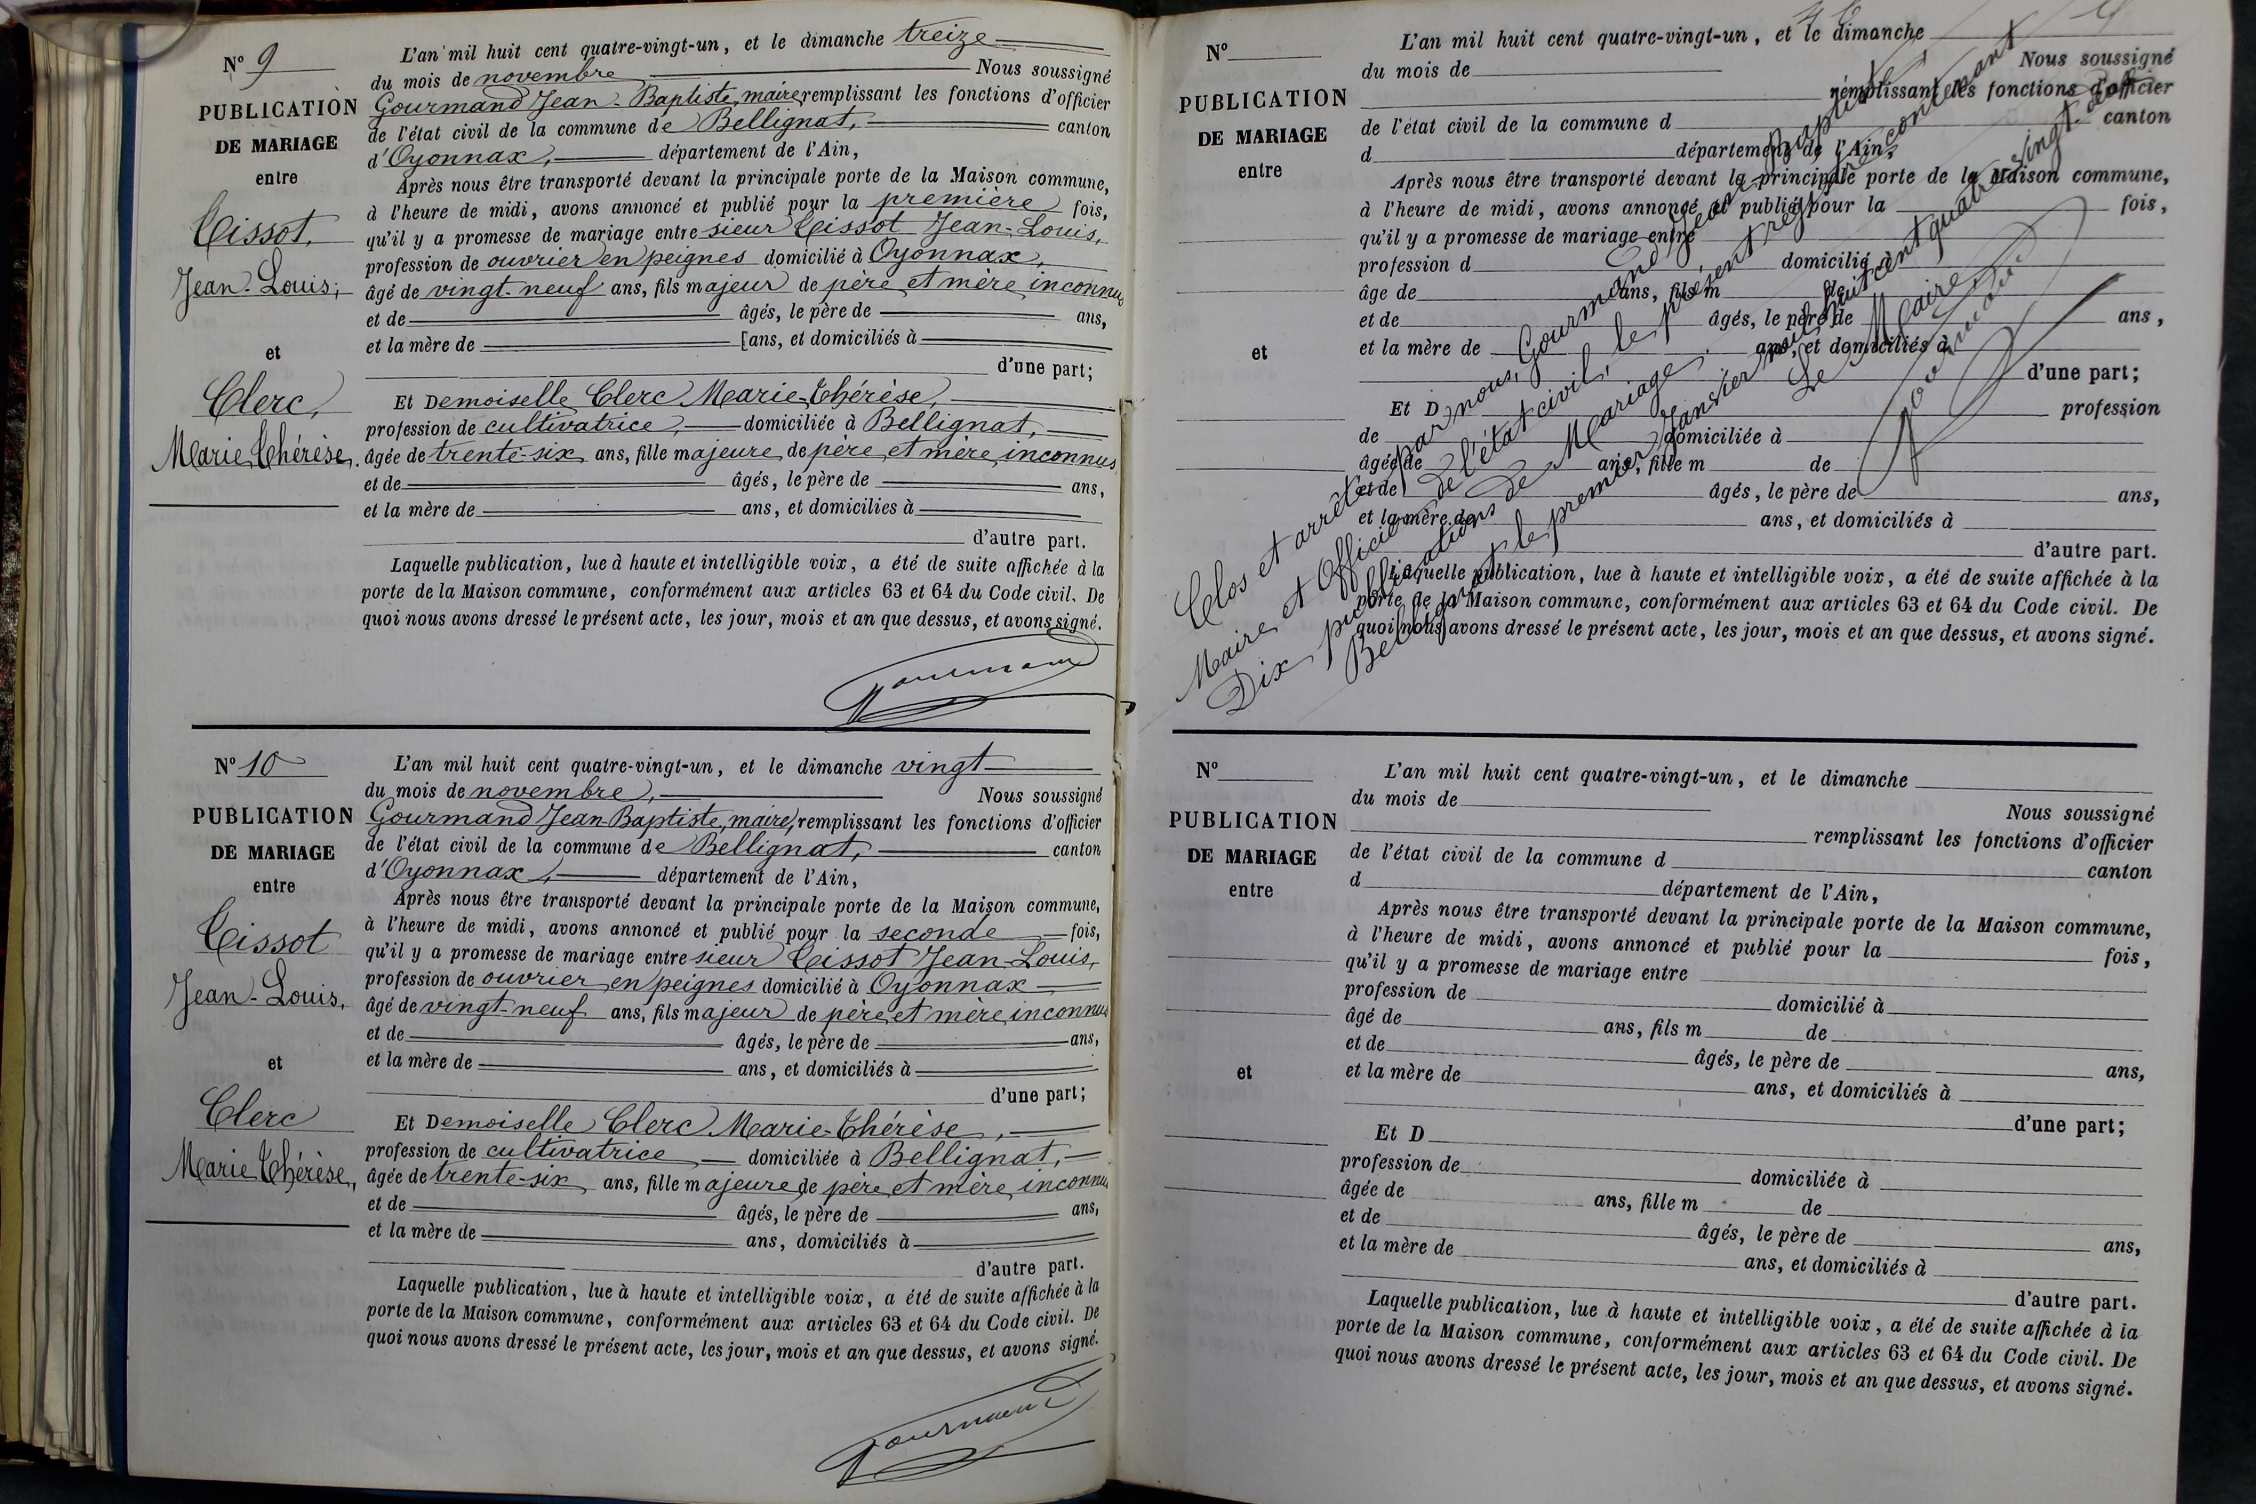 N° 9
PUBLICATION
DE MARIAGE
entre
Tissot,
Jean-Louis,
et
Clerc,
Marie Thérèse.
L'an mil huit cent quatre-vingt-un, et le dimanche treize
du mois de novembre Nous soussigné
Gourmand Jean-Baptiste, maire, remplissant les fonctions d'officier
de l'état civil de la commune de Bellignat, canton
d'Oyonnax, département de l'Ain,
Après nous être transporté devant la principale porte de la Maison commune,
à l'heure de midi, avons annoncé et publié pour la première fois,
qu'il y a promesse de mariage entre sieur Tissot Jean-Louis,
profession de ouvrier en peignes domicilié à Oyonnax,
âgé de vingt-neuf ans, fils majeur de père et mère inconnus
et de âgés, le père de ans,
et la mère de [ans, et domiciliés à
d'une part;
Et Demoiselle Clerc Marie-Thérèse,
profession de cultivatrice, domiciliée à Bellignat,
âgée de trente-six ans, fille majeure de père et mère inconnus
et de âgés, le père de ans,
et la mère de ans, et domicilies à
d'autre part.
Laquelle publication, lue à haute et intelligible voix, a été de suite affichée à la
porte de la Maison commune, conformément aux articles 63 et 64 du Code civil. De
quoi nous avons dressé le présent acte, les jour, mois et an que dessus, et avons signé.
Gourmand
N° 10
PUBLICATION
DE MARIAGE
entre
Tissot
Jean-Louis,
et
Clerc
Marie Thérèse,
L'an mil huit cent quatre-vingt-un, et le dimanche vingt
du mois de novembre, Nous soussigné
Gourmand Jean Baptiste, maire, remplissant les fonctions d'officier
de l'état civil de la commune de Bellignat, canton
d'Oyonnax, département de l'Ain,
Après nous être transporté devant la principale porte de la Maison commune,
à l'heure de midi, avons annoncé et publié pour la seconde fois,
qu'il y a promesse de mariage entre sieur Tissot Jean-Louis,
profession de ouvrier en peignes domicilié à Oyonnax
âgé de vingt-neuf ans, fils majeur de père et mère inconnus
et de âgés, le père de ans,
et la mère de ans, et domiciliés à
d'une part;
Et Demoiselle Clerc Marie-Thérèse,
profession de cultivatrice domiciliée à Bellignat,
âgée de trente-six ans, fille majeure de père et mère inconnus
et de âgés, le père de ans,
et la mère de ans, domiciliés à
d'autre part.
Laquelle publication, lue à haute et intelligible voix, a été de suite affichée à la
porte de la Maison commune, conformément aux articles 63 et 64 du Code civil. De
quoi nous avons dressé le présent acte, les jour, mois et an que dessus, et avons signé.
Gourmand
N°
PUBLICATION
DE MARIAGE
entre
et
L'an mil huit cent quatre-vingt-un, et le dimanche
du mois de Nous soussigné
remplissant les fonctions d'officier
de l'état civil de la commune d canton
d département de l'Ain,
Après nous être transporté devant la principale porte de la Maison commune,
à l'heure de midi, avons annoncé et publié pour la fois,
qu'il y a promesse de mariage entre
profession d domicilié à
âge de ans, fils m de
et de âgés, le père de ans,
et la mère de ans, et domiciliés à
d'une part;
Et D profession
de domiciliée à
âgée de ans, fille m de
et de âgés, le père de ans,
et la mère de ans, et domiciliés à
d'autre part.
Laquelle publication, lue à haute et intelligible voix, a été de suite affichée à la
porte de la Maison commune, conformément aux articles 63 et 64 du Code civil. De
quoi nous avons dressé le présent acte, les jour, mois et an que dessus, et avons signé.
Clos et arrêté par nous, Gourmand Jean-Baptiste,
Maire et Officier de l'état civil, le présent registre contenant
Dix publications de Mariage.
Bellignat le premier Janvier mil huit cent quatre-vingt-deux
Le Maire
Gourmand
N°
PUBLICATION
DE MARIAGE
entre
et
L'an mil huit cent quatre-vingt-un, et le dimanche
du mois de Nous soussigné
remplissant les fonctions d'officier
de l'état civil de la commune d canton
d département de l'Ain,
Après nous être transporté devant la principale porte de la Maison commune,
à l'heure de midi, avons annoncé et publié pour la fois,
qu'il y a promesse de mariage entre
profession de domicilié à
âgé de ans, fils m de
et de âgés, le père de ans,
et la mère de ans, et domiciliés à
d'une part;
Et D
profession de domiciliée à
âgée de ans, fille m de
et de âgés, le père de ans,
et la mère de ans, et domiciliés à
d'autre part.
Laquelle publication, lue à haute et intelligible voix, a été de suite affichée à la
porte de la Maison commune, conformément aux articles 63 et 64 du Code civil. De
quoi nous avons dressé le présent acte, les jour, mois et an que dessus, et avons signé.